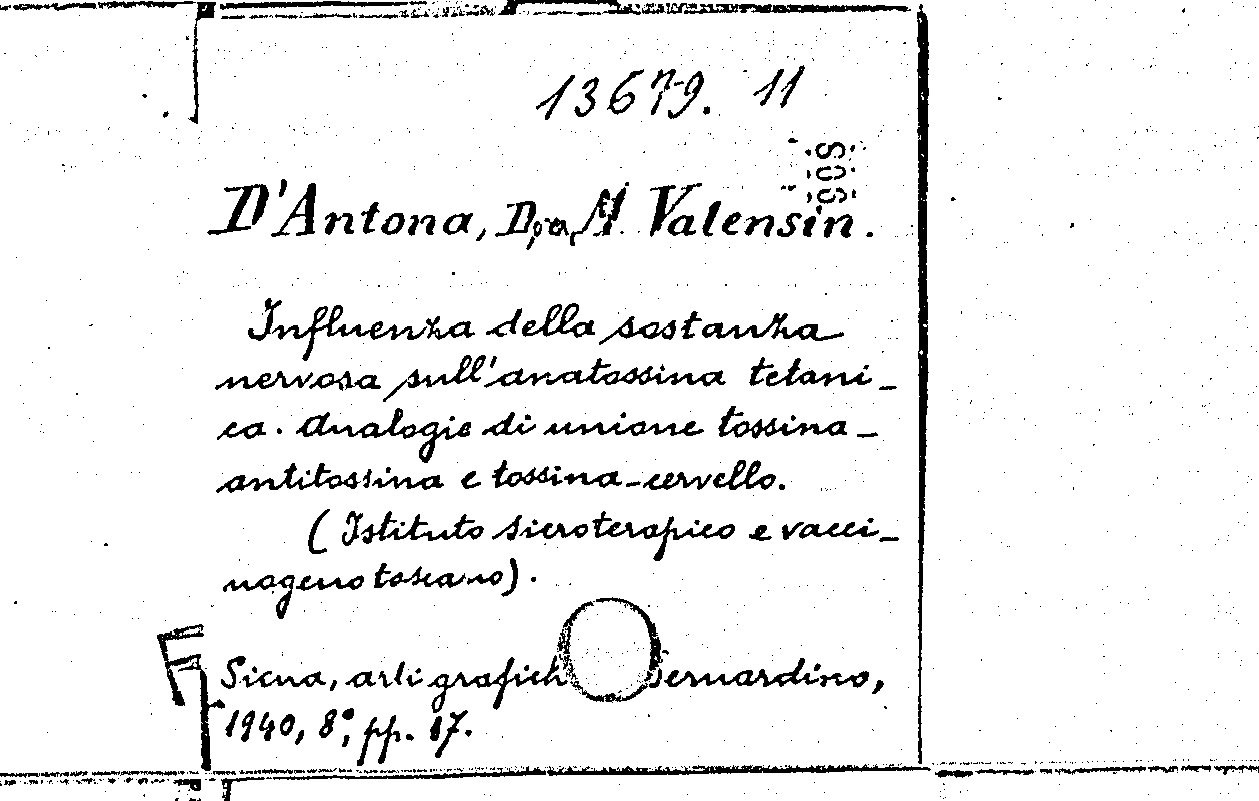 13679. 11
D'Antona, D. M. Valensin.
Influenza della sostanza
nervosa sull'anatossina tetani_
ca. Analogie di unione tossina_
antitossina e tossina_cervello.
(Istituto sieroterapico e vacci_
nogeno toscano).
Siena, arti grafich ernardino,
1940, 8°, pp. 17.